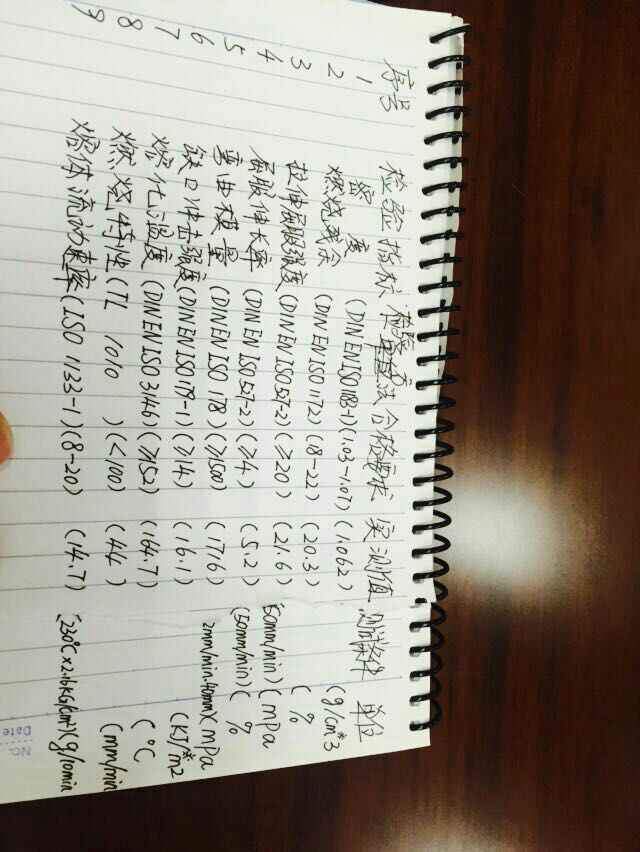 序号 检验指标 检验方法 合格要求 实测值 测试条件 单位
1 密度 (DIN EN ISO 1183-1) (1.03-1.07) (1.062) (g/cm*3
2 燃烧残余 (DIN EN ISO 1172) (18-22) (20.3) ( %
3 拉伸屈服强度 (DIN EN ISO 527-2) (≥20) (21.6) 50mm/min) (mpa
4 屈服伸长率 (DIN EN ISO 527-2) (≥4) (5.2) (50mm/min) ( %
5 弯曲模量 (DIN EN ISO 178) (≥1500) (1716) 2mm/min. )(mpa
6 缺口冲击强度 (DIN EN ISO 179-1) (≥14) (16.1) (KJ/*m2
7 熔化温度 (DIN EN ISO 3146) (≥152) (164.7) (°C
8 燃烧特性 (TL 1010 ) (<100) (44) (mm/min
9 熔体流动速率 (ISO 1133-1) (8-20) (14.7) (230℃×2.16KG/ )(g/10min
Date
NO.